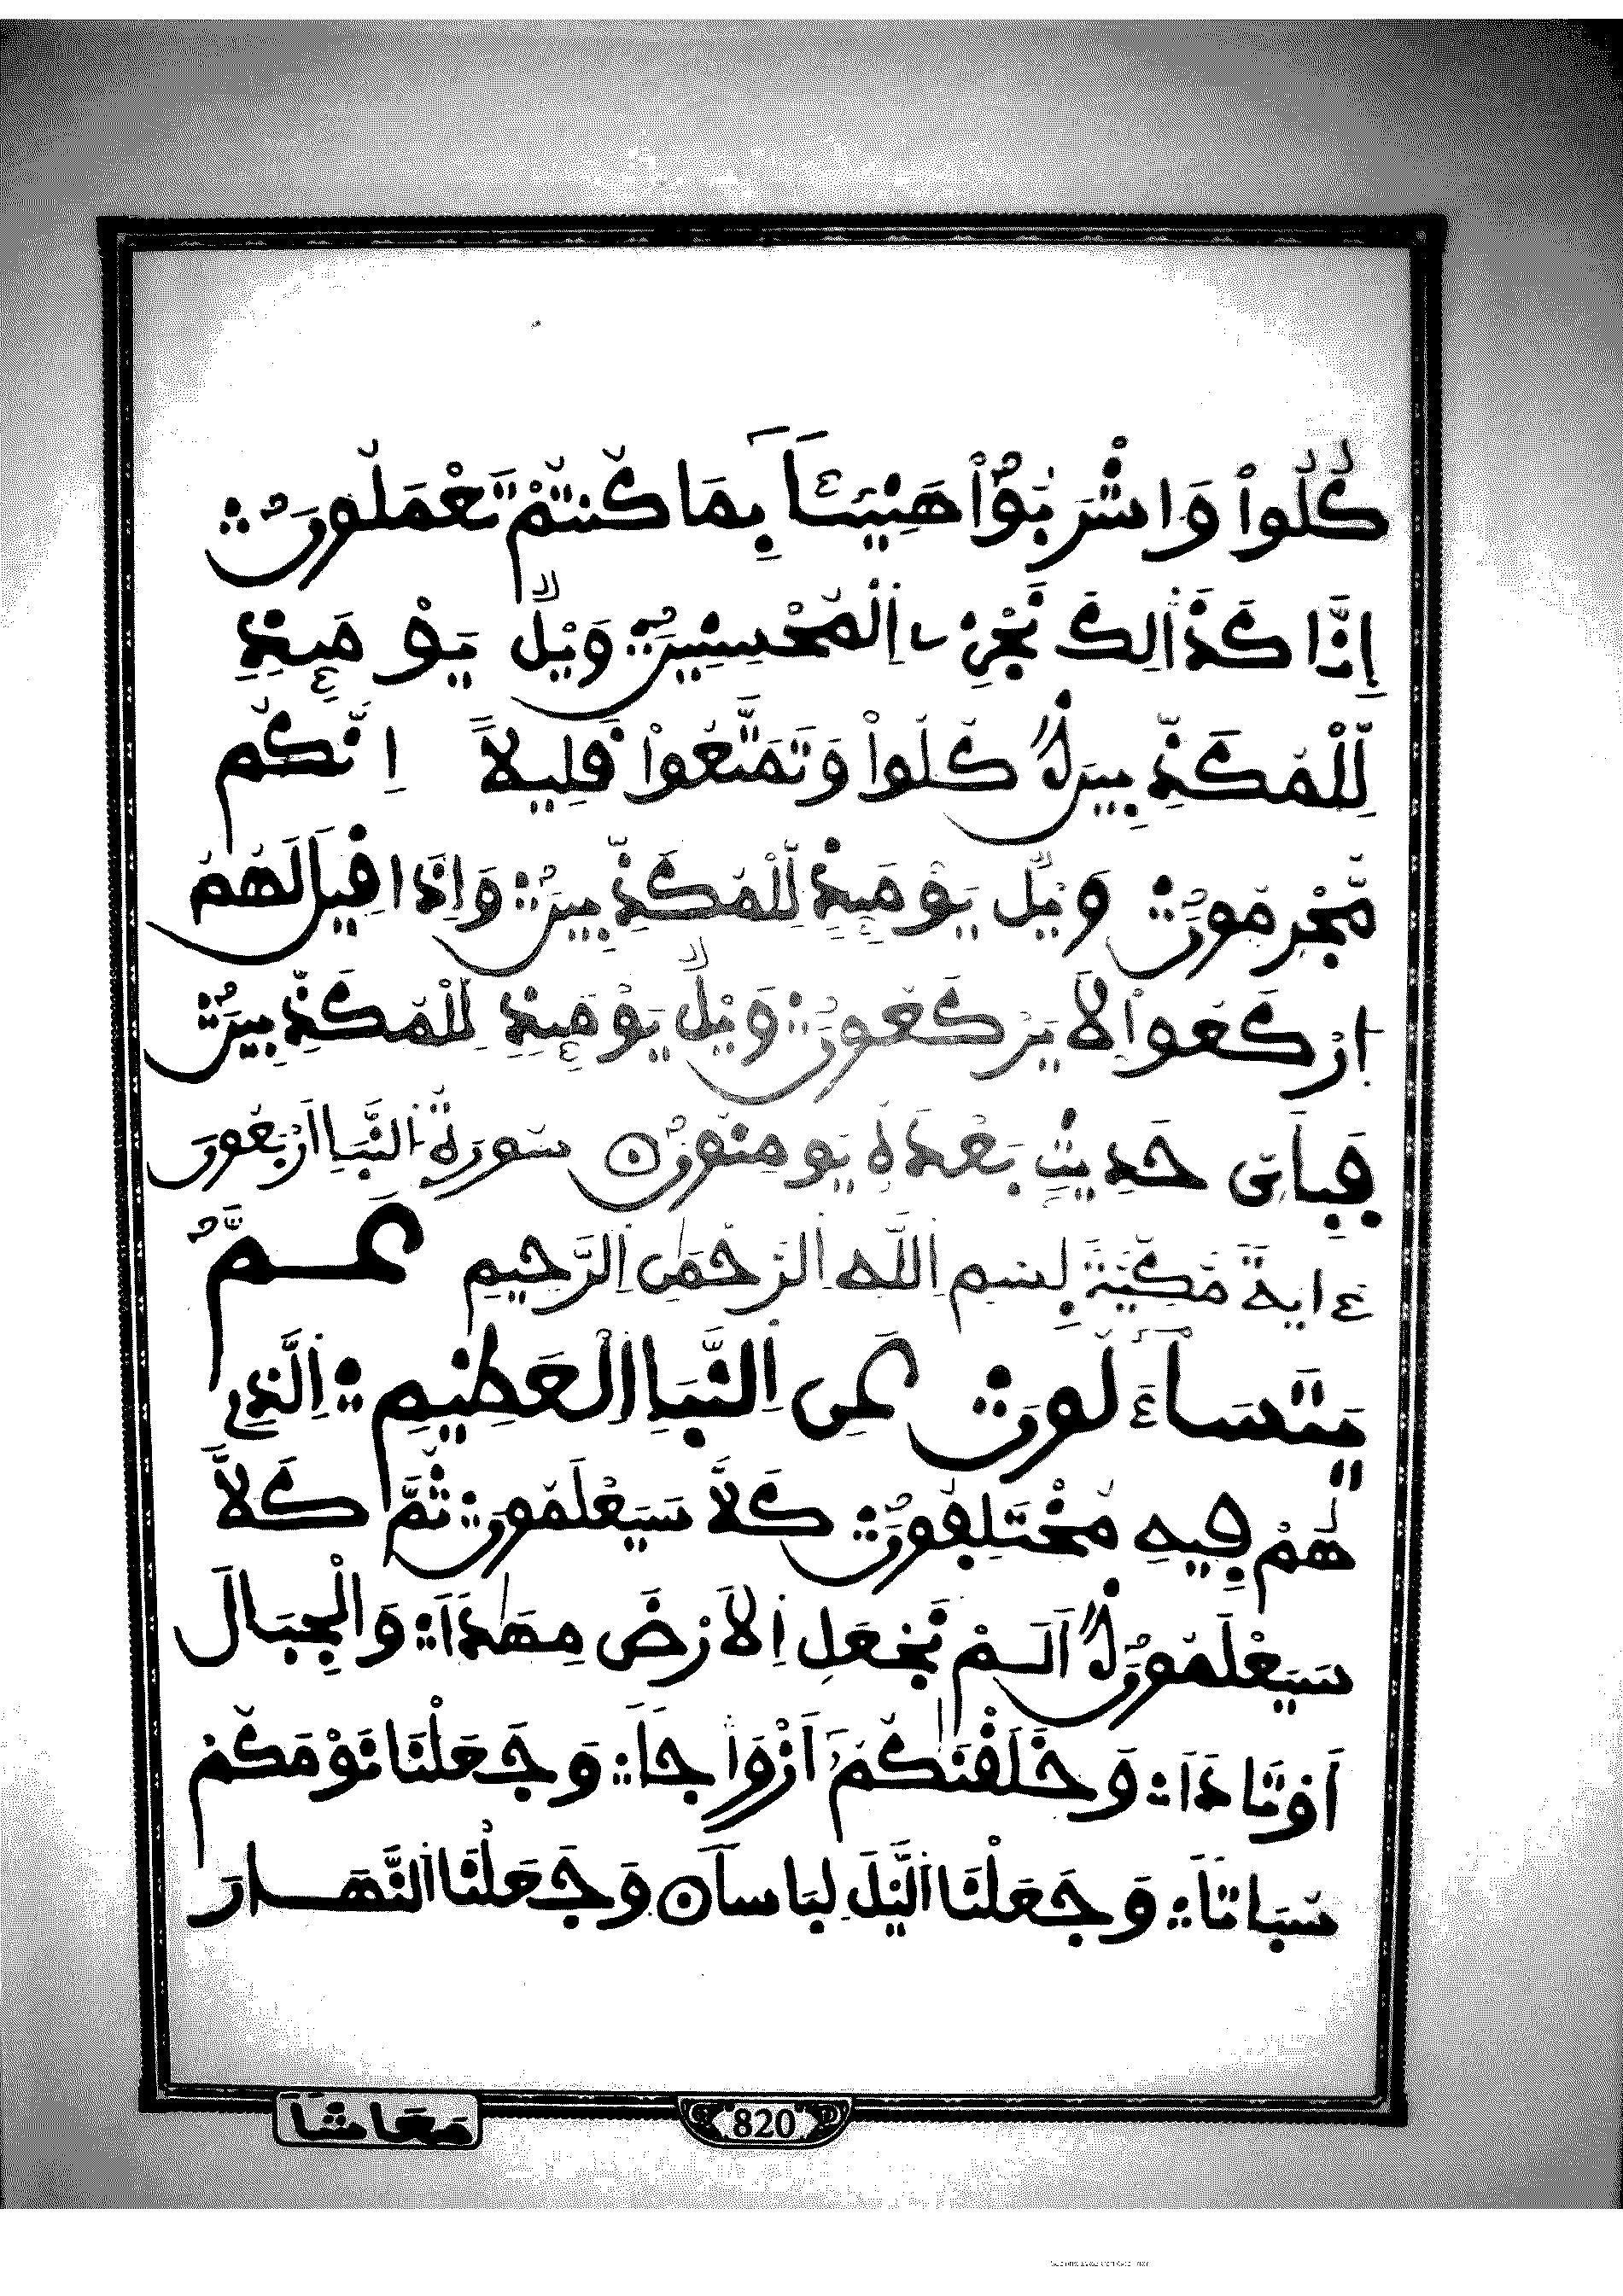 كُلُوا۟ وَاشْرَبُوا۟ هَنِيـَٔاۢ بِمَا كُنتُمْ تَعْمَلُونَ
إِنَّا كَذَٰلِكَ نَجْزِے اِلْمُحْسِنِينَ وَيْلٌ يَوْمَئِذٍ
لِّلْمُكَذِّبِينَ كُلُوا۟ وَتَمَتَّعُوا۟ قَلِيلاً اِنَّكُم
مُّجْرِمُونَ وَيْلٌ يَوْمَئِذٍ لِّلْمُكَذِّبِينَ وَإِذَا قِيلَ لَهُمُ
اُرْكَعُوا۟ لَا يَرْكَعُونَ وَيْلٌ يَوْمَئِذٍ لِّلْمُكَذِّبِينَ
فَبِأَىِّ حَدِيثٍ بَعْدَهُۥ يُومِنُونَ سُورَةُ النَّبَإِ أَرْبَعُونَ
ءَايَةً مَكِّيَّةٌ بِسْمِ اِللَّهِ اِلرَّحْمَٰنِ اِلرَّحِيمِ عَمَّ
يَتَسَآءَلُونَ عَنِ اِلنَّبَإِ اِلْعَظِيمِ اِلَّذِے
هُمْ فِيهِ مُخْتَلِفُونَ كَلَّا سَيَعْلَمُونَ ثُمَّ كَلَّا
سَيَعْلَمُونَ أَلَمْ نَجْعَلِ اِلَارْضَ مِهَٰدًا وَالْجِبَالَ
أَوْتَادًا وَخَلَقْنَٰكُمُۥٓ أَزْوَاجًا وَجَعَلْنَا نَوْمَكُمْ
سُبَاتًا وَجَعَلْنَا اَليْلَ لِبَاسًا وَجَعَلْنَا اَلنَّهَارَ
مَعَاشًا
820